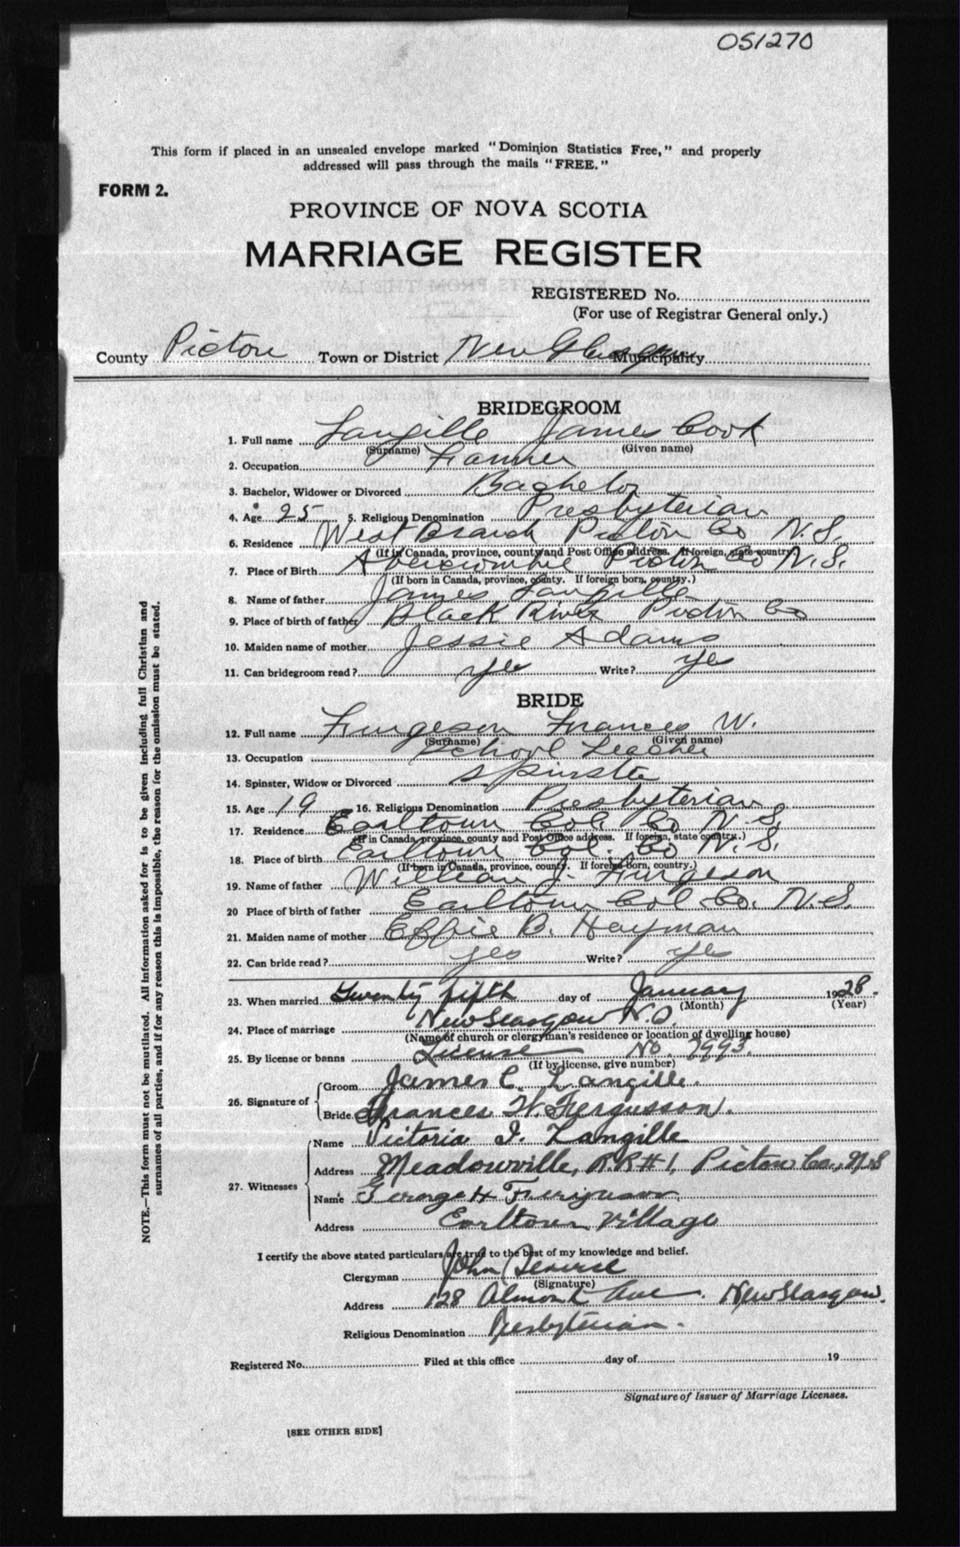 051270
This form if placed in an unsealed envelope marked "Dominion Statistics Free," and properly
addressed will pass through the mails "FREE."
FORM 2.
PROVINCE OF NOVA SCOTIA
MARRIAGE REGISTER
REGISTERED No.
(For use of Registrar General only.)
County Pictou Town or District New Glasgow Municipality
BRIDEGROOM
1. Full name Langille James Cook
(Surname) (Given name)
2. Occupation Farmer
3. Bachelor, Widower or Divorced Bachelor
4. Age 25 5. Religious Denomination Presbyterian
6. Residence West Branch Pictou Co N.S.
(If in Canada, province, county and Post Office address. If foreign, state country.)
7. Place of Birth Abercrombie Pictou Co N.S.
(If born in Canada, province, county. If foreign born, country.)
8. Name of father James Langille
9. Place of birth of father Black River Pictou Co
10. Maiden name of mother Jessie Adams
11. Can bridegroom read? yes Write? yes
BRIDE
12. Full name Furgeson Frances W.
(Surname) (Given name)
13. Occupation School Teacher
14. Spinster, Widow or Divorced Spinster
15. Age 19 16. Religious Denomination Presbyterian
17. Residence Earltown Col Co N.S.
(If in Canada, province, county and Post Office address. If foreign, state country.)
18. Place of birth Earltown Col. Co N.S.
(If born in Canada, province, county. If foreign born, country.)
19. Name of father William J. Furgeson
20 Place of birth of father Earltown Col Co. N.S.
21. Maiden name of mother Effie B. Hayman
22. Can bride read? yes Write? yes
23. When married Twenty fifth day of January 1928.
(Month) (Year)
24. Place of marriage New Glasgow N.S.
(Name of church or clergyman's residence or location of dwelling house)
25. By license or banns License No. 7993.
(If by license, give number)
26. Signature of
Groom James C. Langille.
Bride Frances W. Fergusson.
27. Witnesses
Name Victoria I. Langille
Address Meadowville, R.R#1, Pictou Co., N.S
Name George H Ferguson
Address Earltown Village
I certify the above stated particulars are true to the best of my knowledge and belief.
Clergyman John
(Signature)
Address 128 Almont Ave. New Glasgow.
Religious Denomination Presbyterian.
Registered No. Filed at this office day of 19
Signature of Issuer of Marriage Licenses.
[SEE OTHER SIDE]
NOTE.—This form must not be mutilated. All information asked for is to be given including full Christian and
surnames of all parties, and if for any reason this is impossible, the reason for the omission must be stated.